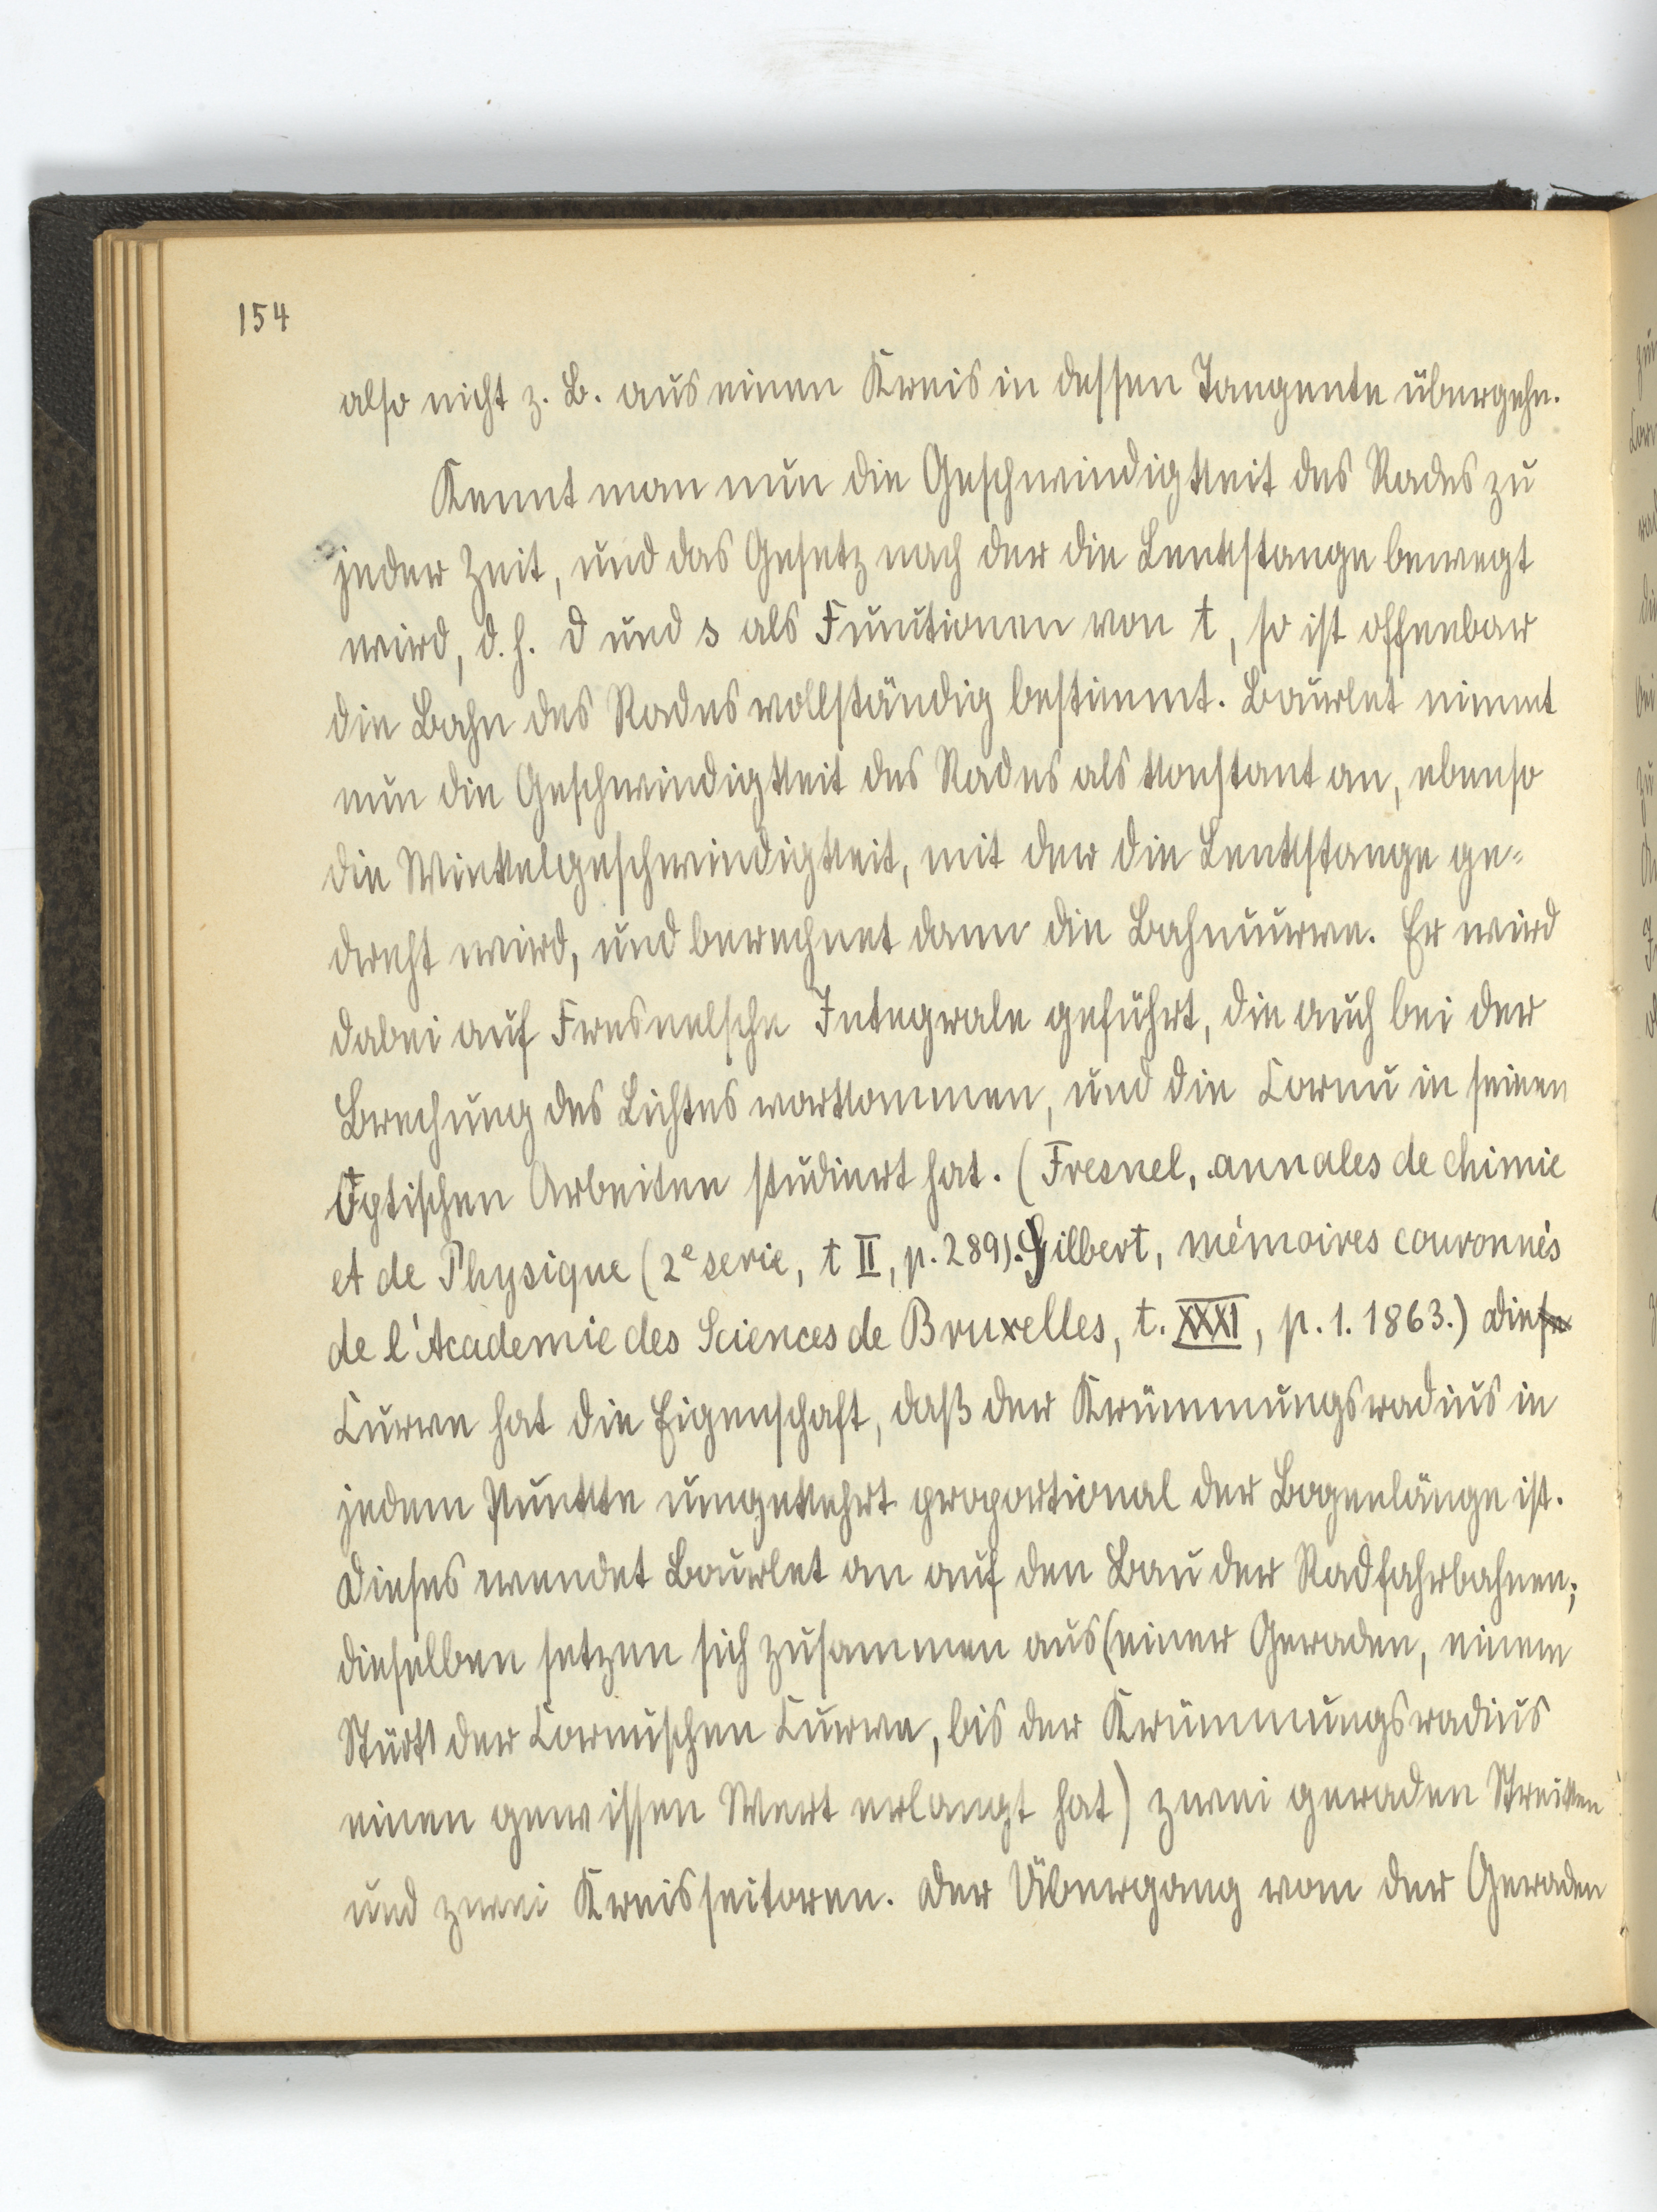 154
also nicht z. B. aus einen Kreis in dessen Tangente übergehn.
Kennt man nun die Geschwindigkeit des Rades zu
jeder Zeit, und das Gesetz nach der die Lenkstange bewegt
wird, d. h. d und s als Functionen von t, so ist offenbar
die Bahn des Rades vollständig bestimmt. Bourlet nimmt
nun die Geschwindigkeit des Rades als konstant an, ebenso
die Winkelgeschwindigkeit, mit der die Lenkstange ge-
dreht wird, und berechnet dann die Bahncurve. Er wird
dabei auf Fresnelsche Integrale geführt, die auch bei der
Brechung des Lichtes vorkommen, und die Cornu in seinen
Optischen Arbeiten studiert hat. (Fresnel, annales de chimie
et de Physique (2e serie, t II, p. 289). Gilbert, mémoires couronnés
de l'Academie des Sciences de Bruxelles, t. XXXI, p. 1. 1863.) Diese
Curve hat die Eigenschaft, daß der Krümmungsradius in
jedem Punkte umgekehrt proportional der Bogenlänge ist.
Dieses wendet Bourlet an auf den Bau der Radfahrbahnen;
dieselben setzen sich zusammen aus (einer Geraden, einem
Stück der Cornuschen Curve, bis der Krümmungsradius
einen gewissen Wert erlangt hat) zwei geraden Strecken
und zwei Kreissectoren. Der Übergang von der Geraden